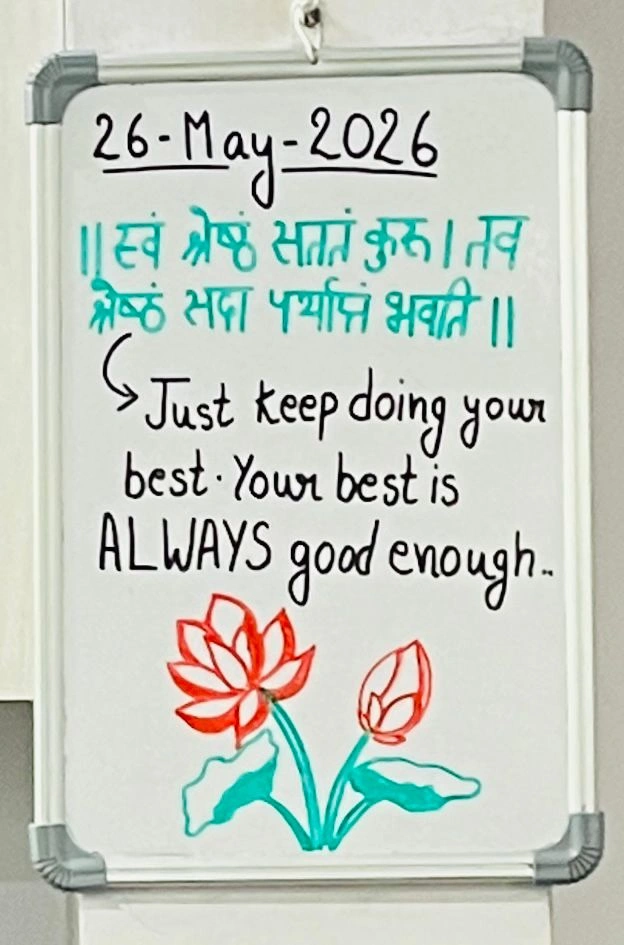 26-May-2026
॥ स्वं श्रेष्ठं सततं कुरू। तव
श्रेष्ठं सदा पर्याप्तं भवति ॥
Just keep doing your
best. Your best is
ALWAYS good enough..